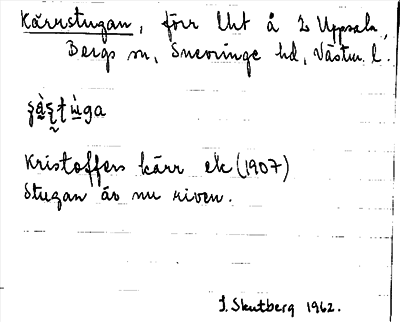 Kärrstugan, förr lht å L Uppsala,
Bergs sn, Snevringe hd, Västm. l.
Kristoffers kärr ek (1907)
Stugan är nu riven.
J. Skutberg 1962.